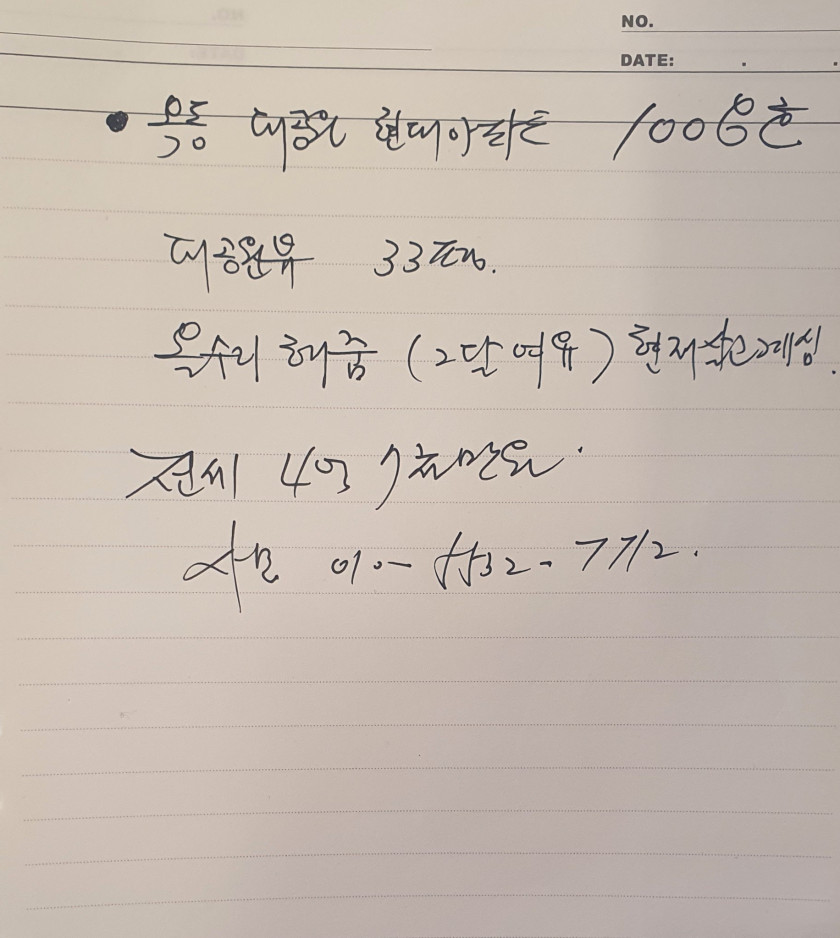 NO.
DATE: . .
• 대공원 현대아파트 1006호
대공원뷰 33평.
올수리 해줌 (2달 여유) 현재
전세 4억 7천만원.
사모 010-5532-7712.